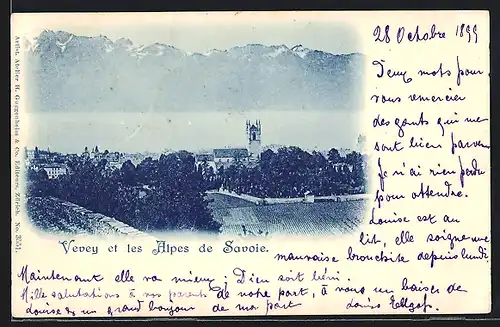 Artist. Atelier H. Guggenheim & Co. Editeurs, Zürich. No. 3551.
28 Octobre 1899
Deux mots pour
vous remercier
des gants qui me
sont bien parvenu
Je n'ai rien perdu
pour attendre.
Louise est au
lit, elle soigne une
mauvaise bronchite depuis lundi.
Vevey et les Alpes de Savoie.
Maintenant elle va mieux, Dieu soit béni.
Mille salutations à vos parents de notre part, à vous un baiser de
Louise & un grand bonjour de ma part